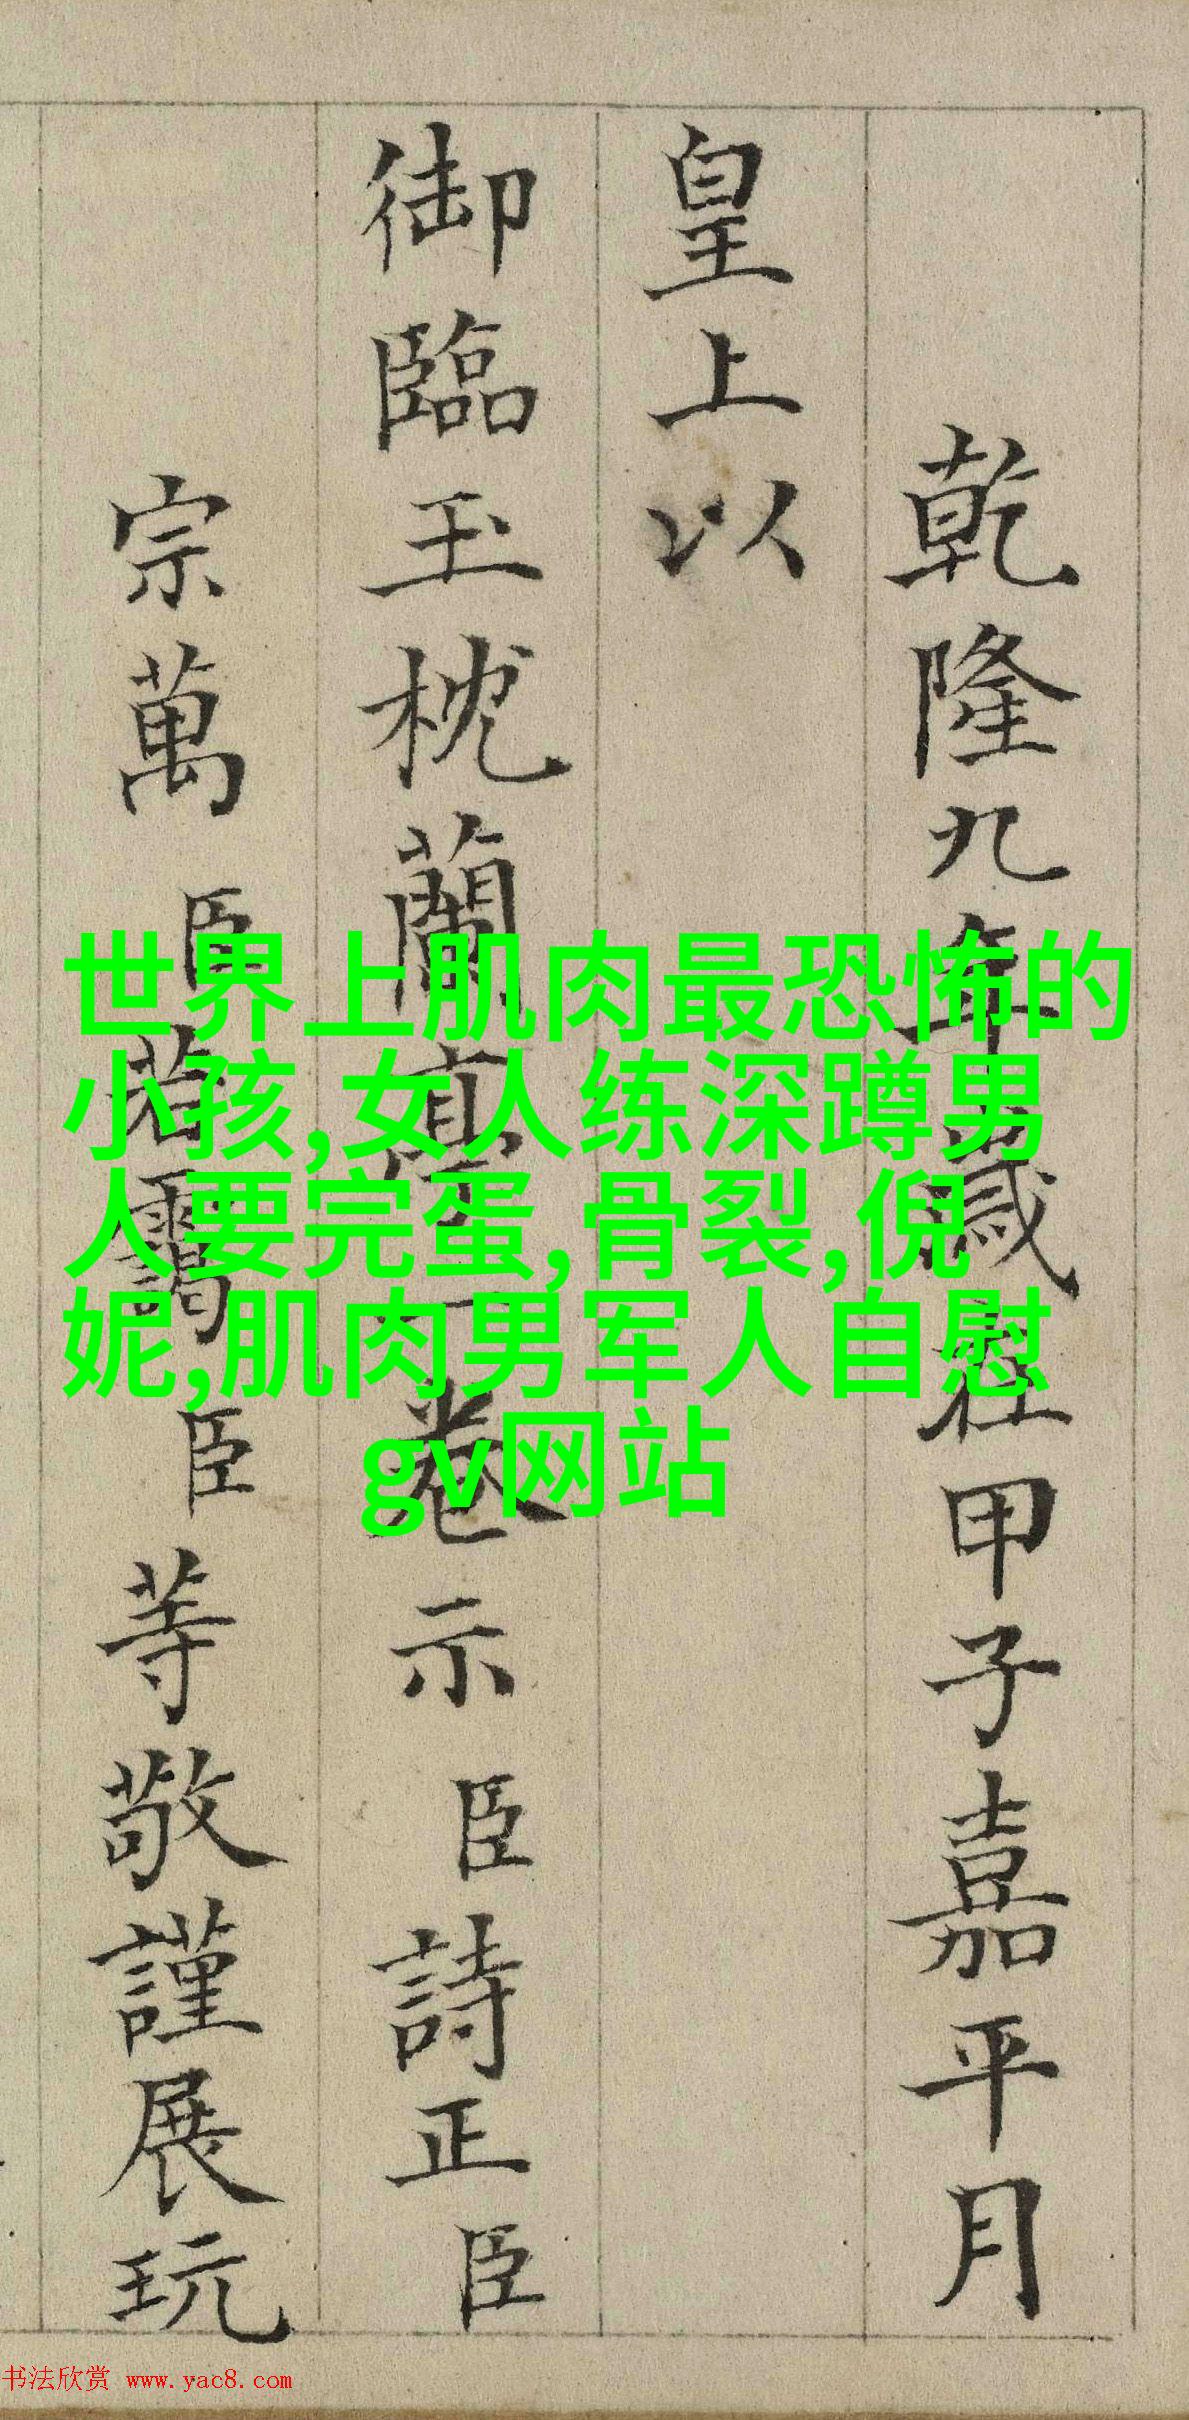 乾隆九年歲在甲子嘉平月
皇上以
御臨玉枕蘭亭一卷示臣詩正臣
宗萬臣若靄臣等敬謹展玩
世界上肌肉最恐怖的
小孩,女人练深蹲男
人要完蛋,骨裂,倪
妮,肌肉男军人自慰
gv网站
书法欣赏 www.yac8.com